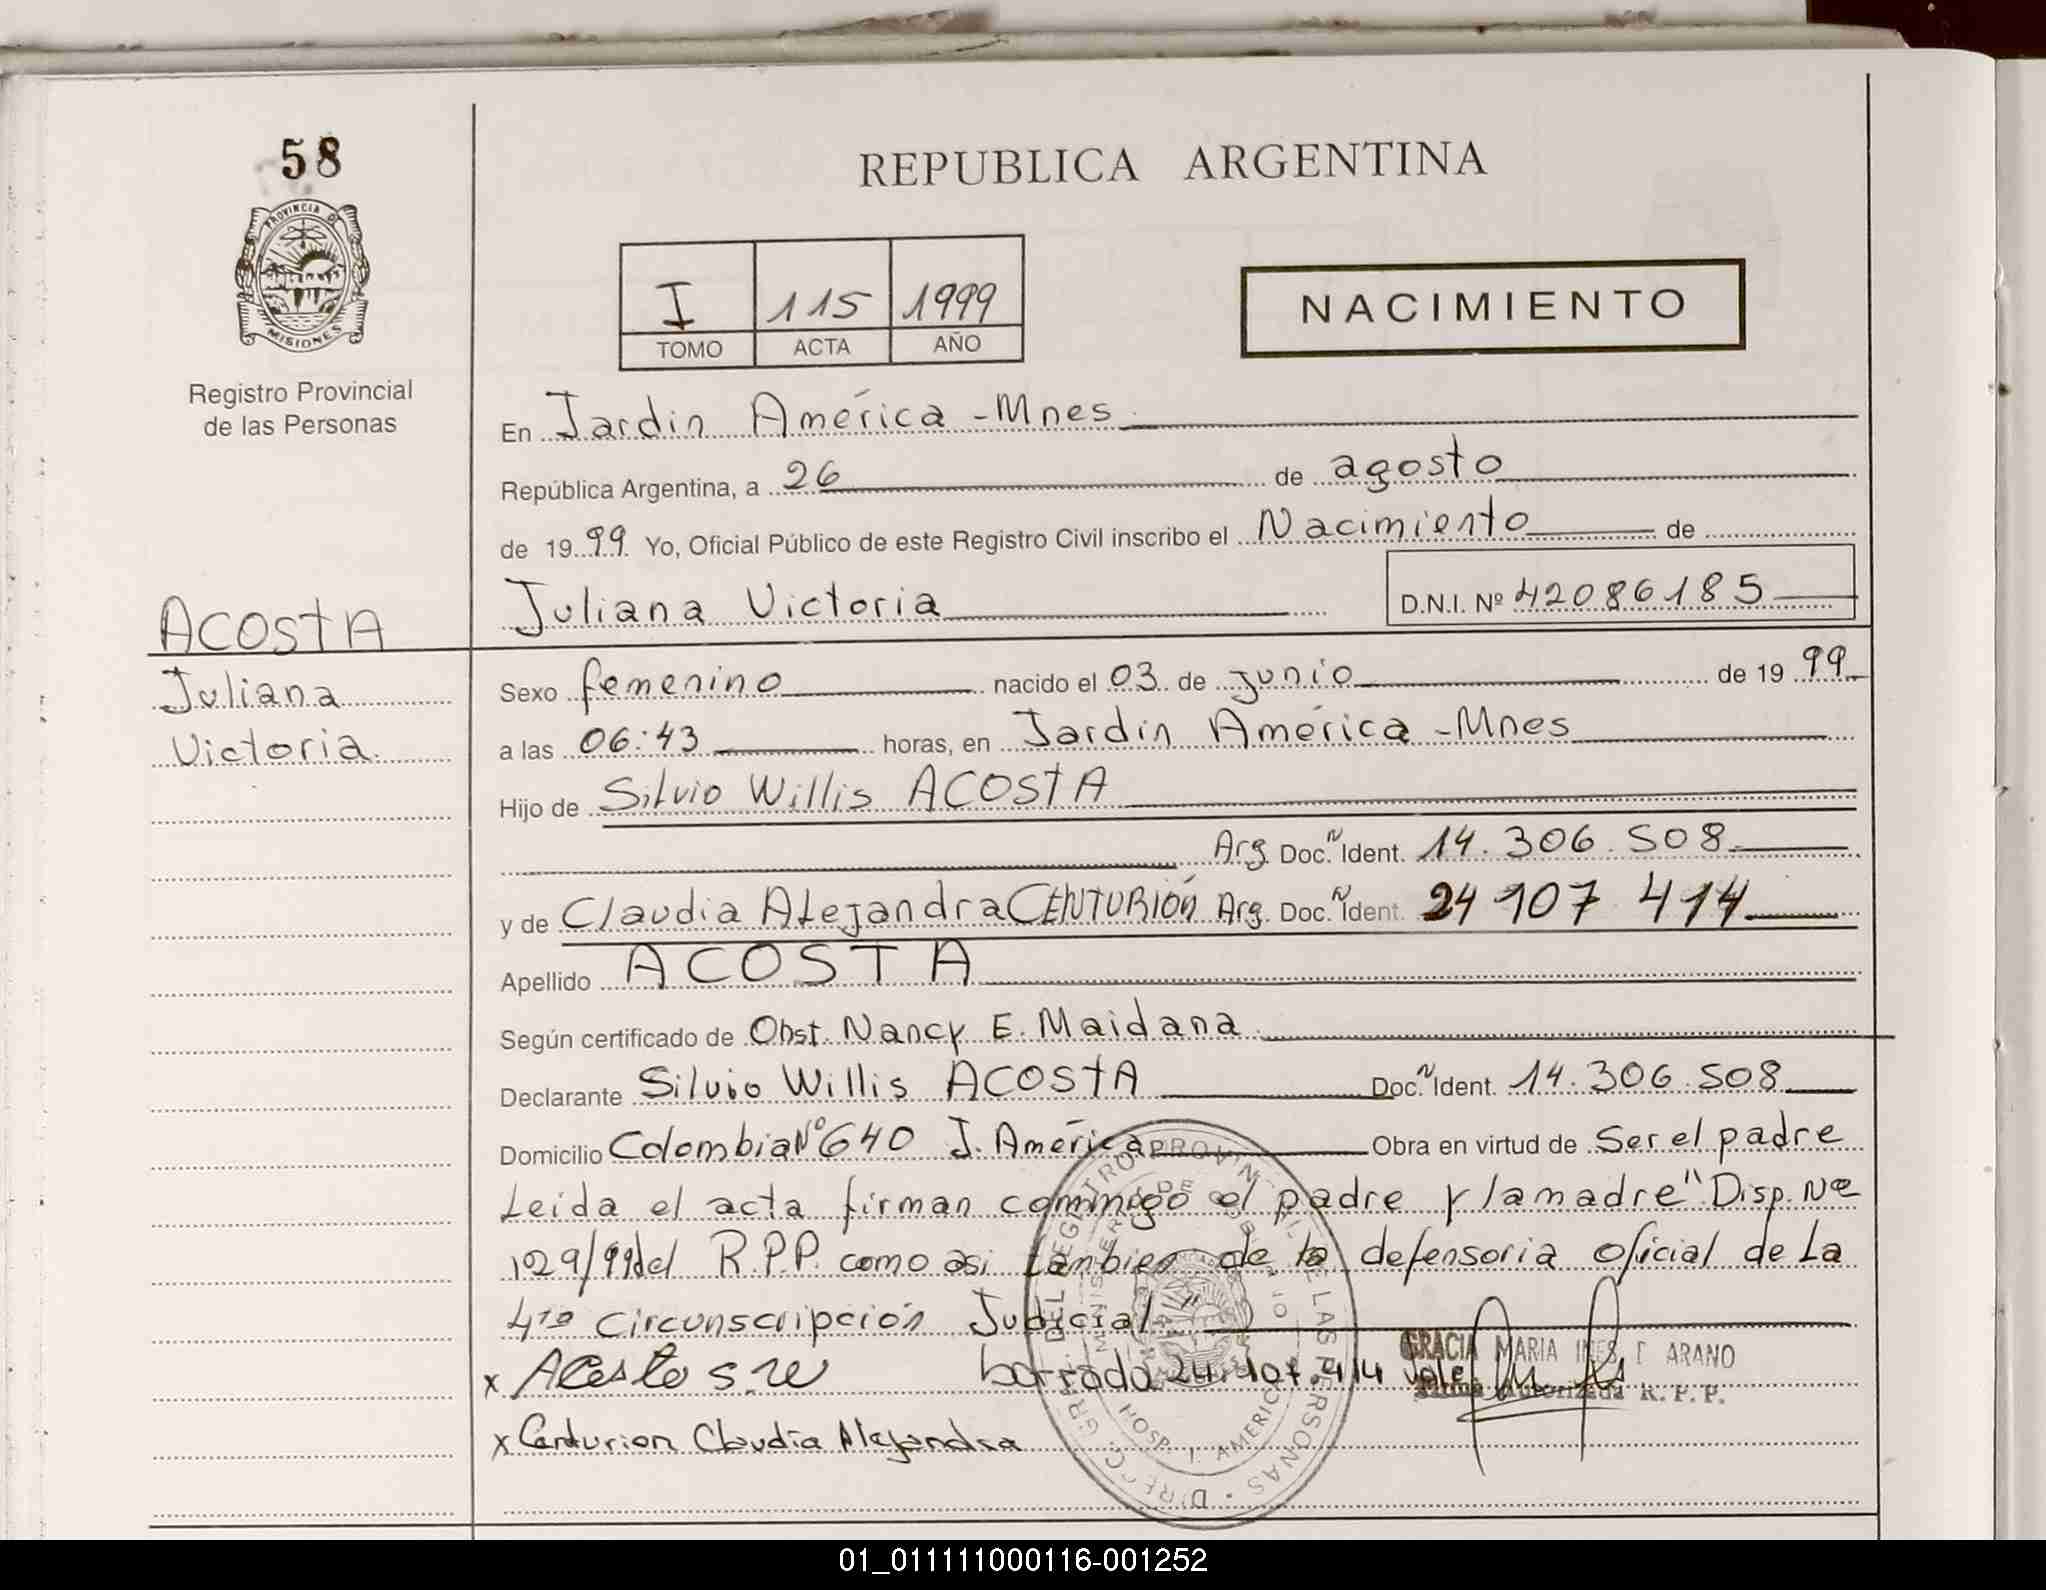 58
PROVINCIA D
MISIONES
Registro Provincial
de las Personas
REPUBLICA ARGENTINA
I 115 1999
TOMO ACTA AÑO
NACIMIENTO
En Jardin América -Mnes
República Argentina, a 26 de agosto
de 1999 Yo, Oficial Público de este Registro Civil inscribo el Nacimiento de
Juliana Victoria D.N.I. Nº 42086185
ACOSTA
Juliana
Victoria.
Sexo femenino nacido el 03 de junio de 1999
a las 06:43 horas, en Jardin América -Mnes
Hijo de Silvio Willis ACOSTA
Arg. Doc. N Ident. 14.306.508
y de Claudia Alejandra CENTURIÓN Arg. Doc. N Ident. 24 107 414
Apellido ACOSTA
Según certificado de Obst. Nancy E. Maidana
Declarante Silvio Willis ACOSTA Doc. N Ident. 14.306.508
Domicilio Colombia Nº 640 J. América Obra en virtud de Ser el padre
Leida el acta firman conmigo el padre y la madre" Disp. Nº
129/99 del R.P.P. como asi tambien de la defensoria oficial de La
4ta Circunscripción Judicial"
x Acosta S. W borrado 24.107.414 vale
GRACIA MARIA INES T ARANO
Firma Autorizada R. P. P.
x Centurion Claudia Alejandra
HOSP. J. AMERICA
01_011111000116-001252